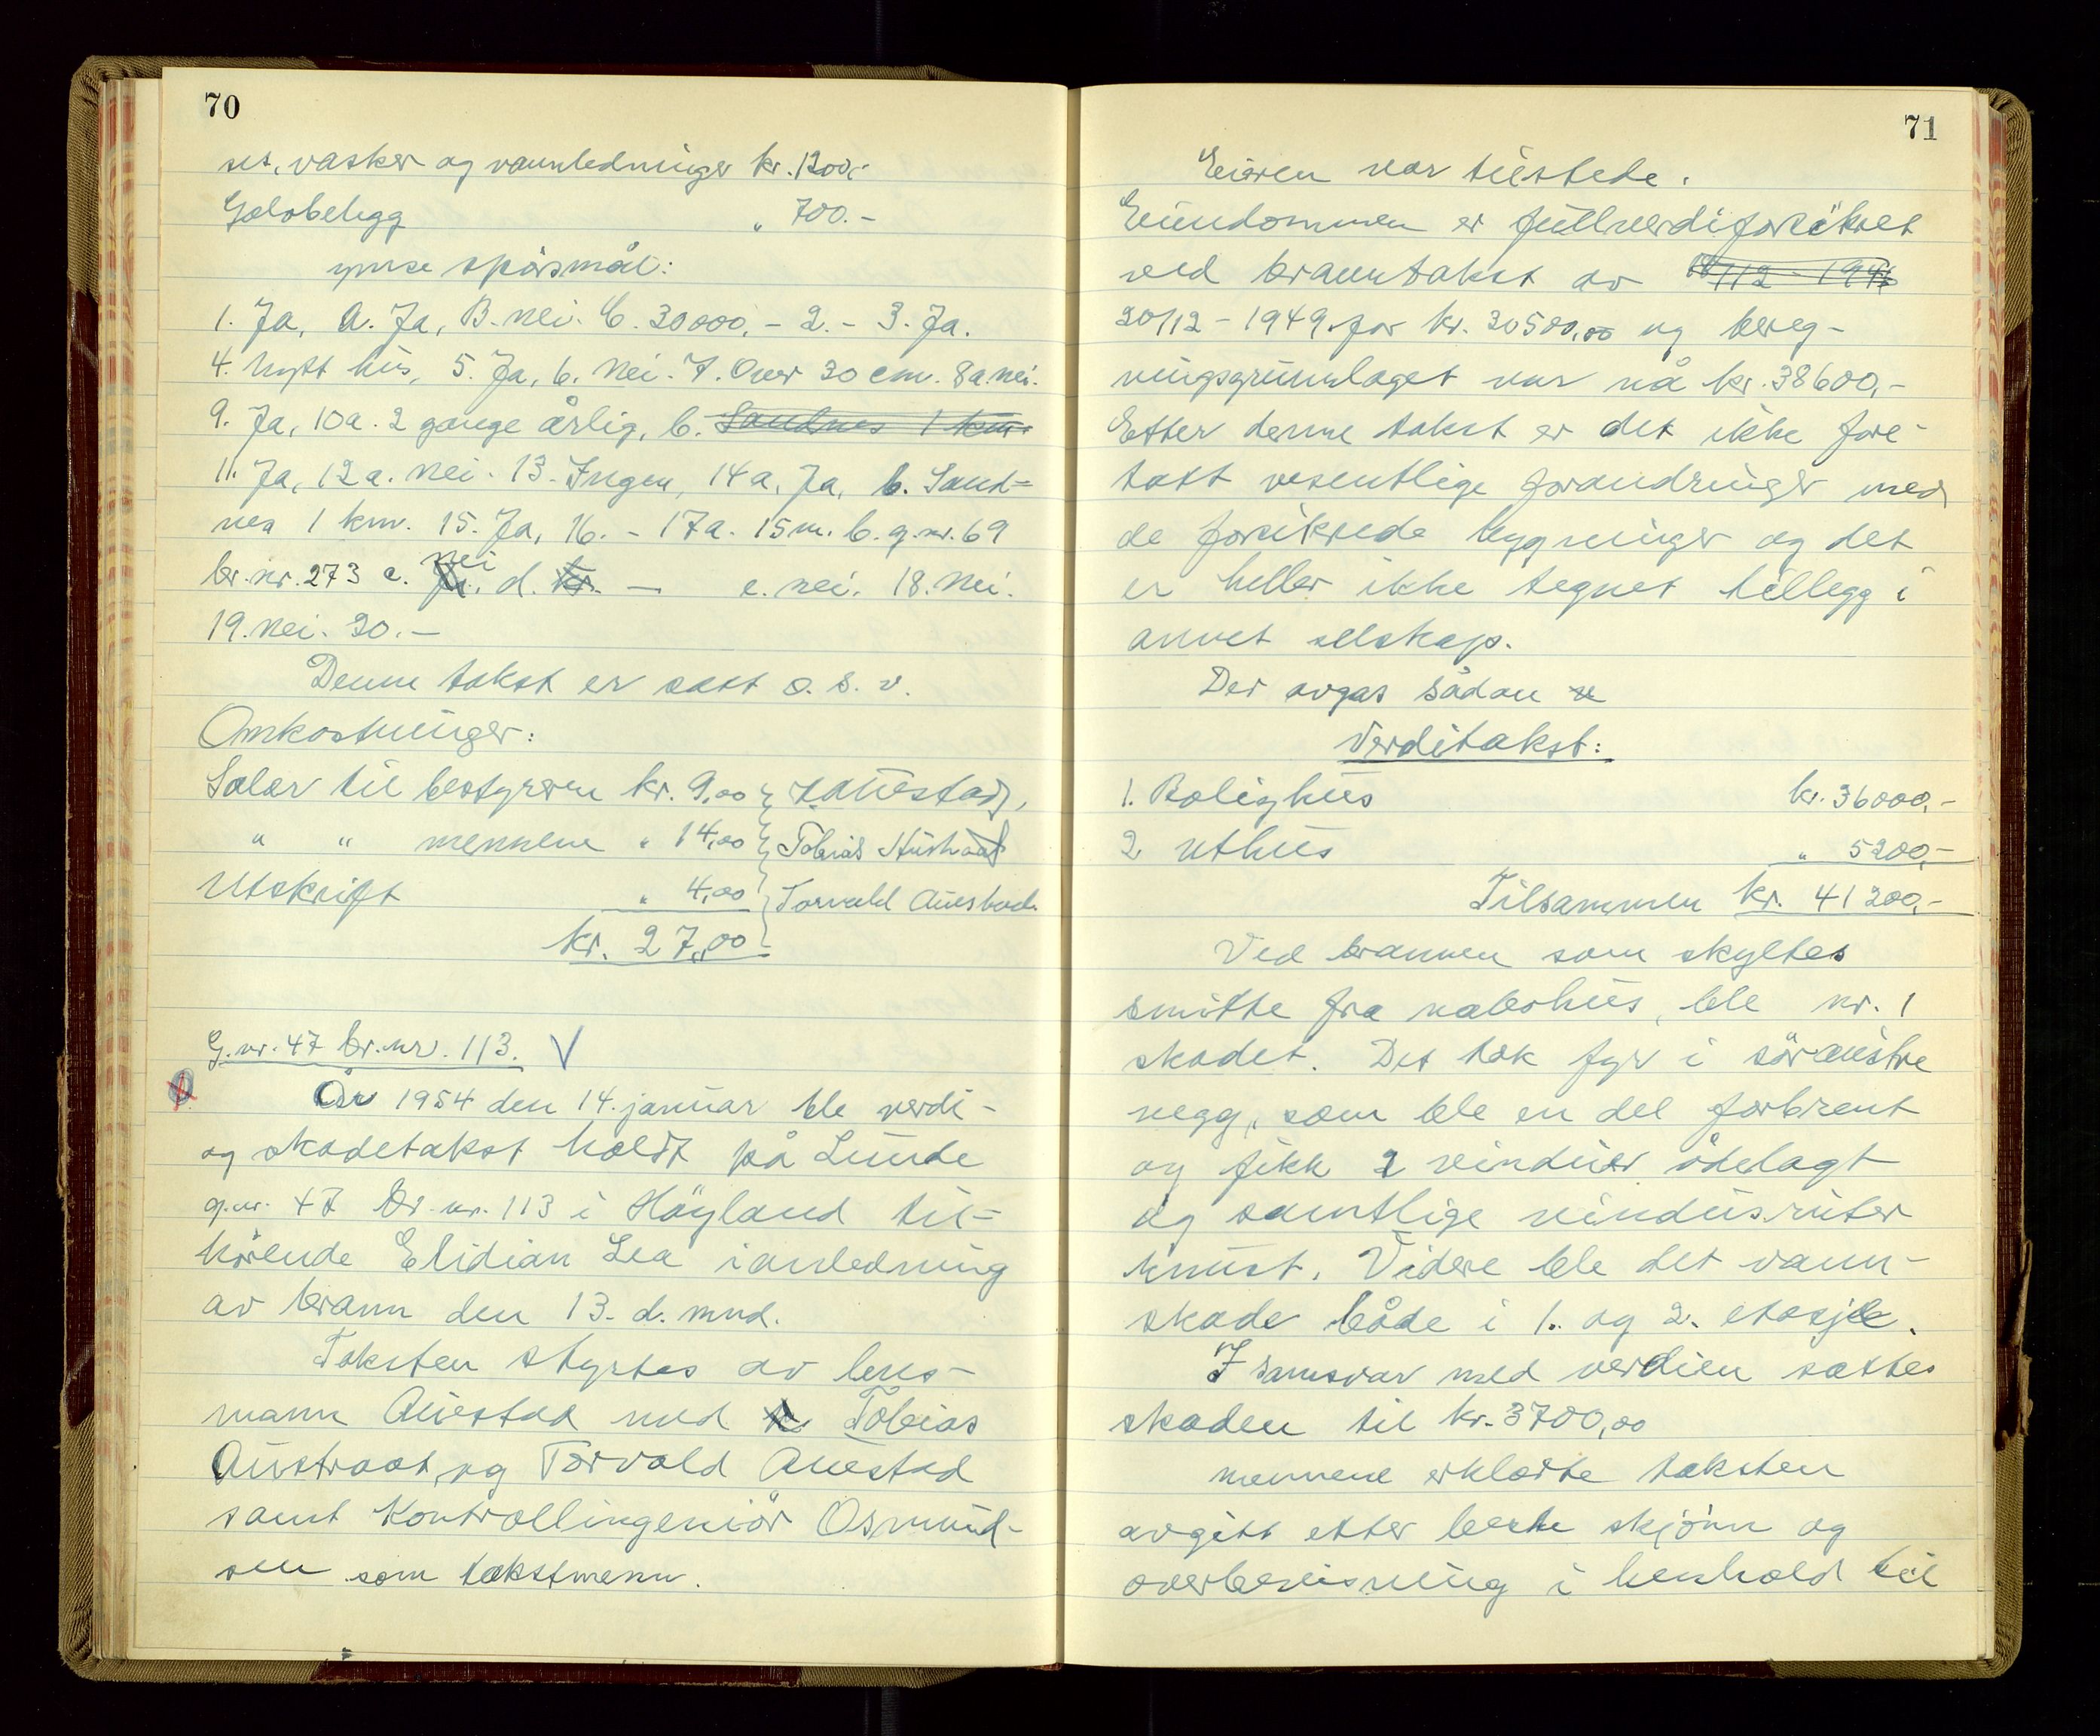 70
ses, vasker og vannledninger kr. 1200,-
Golvbelegg " 700.-
ymse spörsmål:
1. Ja, A. Ja, B. nei. C. 30000,- 2. - 3. Ja.
4. Nytt hus, 5. Ja, 6. Nei. 7. Over 30 cm. 8a. nei.
9. Ja, 10a. 2 gange årlig, b. Sandnes 1 km.
11. Ja, 12a. nei. 13. Ingen, 14a. Ja, b. Sand-
nes 1 km. 15. Ja, 16. - 17a. 15 m. b. g.nr. 69
br.nr. 273 c. nei d. kr. — e. nei. 18. Nei.
19. nei. 20. —
Denne takst er satt o.s.v.
Omkostninger:
Salær til bestyreren kr. 9,00 } Auestad,
" " mennene " 14,00 } Tobias Austraat
Utskrift " 4,00 } Torvald Auestad.
kr. 27,00
G.nr. 47 br.nr. 113. V
År 1954 den 14. januar ble verdi-
og skadetakst holdt på Lunde
g.nr. 47 br.nr. 113 i Höyland til-
hörende Elidian Lea i anledning
av brann den 13. d. mnd.
Taksten styrtes av lens-
mann Auestad med Tobias
Austraat og Torvald Auestad
samt Kontrollingeniör Osmund-
sen som takstmenn.
71
Eieren var tilstede.
Eiendommen er fullverdiforsikret
ved branntakst av 20/12 - 1949
20/12 - 1949 for kr. 20500,00 og bereg-
ningsgrunnlaget var nå kr. 38600,-
Etter denne takst er det ikke fore-
tatt vesentlige forandringer med
de forsikrede bygninger og det
er heller ikke tegnet tillegg i
annet selskap.
Der avgas sådan
Verditakst:
1. Bolighus kr. 36000,-
2 Uthus " 5200,-
Tilsammen kr. 41200,-
Ved brannen som skyltes
smitte fra nabohus, ble nr. 1
skadet. Det tok fyr i söraustre
vegg, som ble en del forbrent
og fikk 2 vinduer ödelagt
og samtlige vindusruter
knust. Videre ble det vann-
skade både i 1. og 2. etasje.
I samsvar med verdien sattes
skaden til kr. 3700,00
Mennene erklærte taksten
avgitt etter beste skjönn og
overbevisning i henhold til